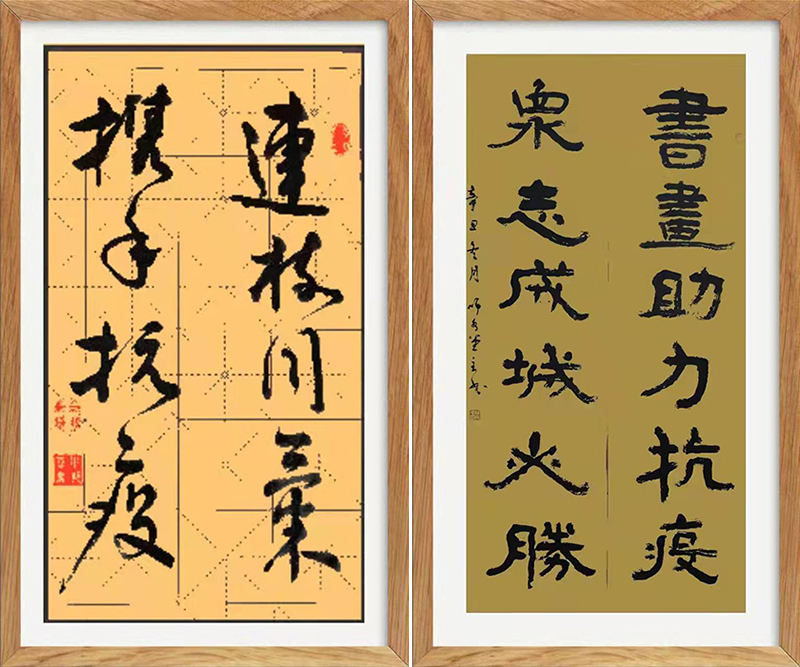 連枝同氣
携手抗疫
書畫助力抗疫
眾志成城必勝
辛丑冬月